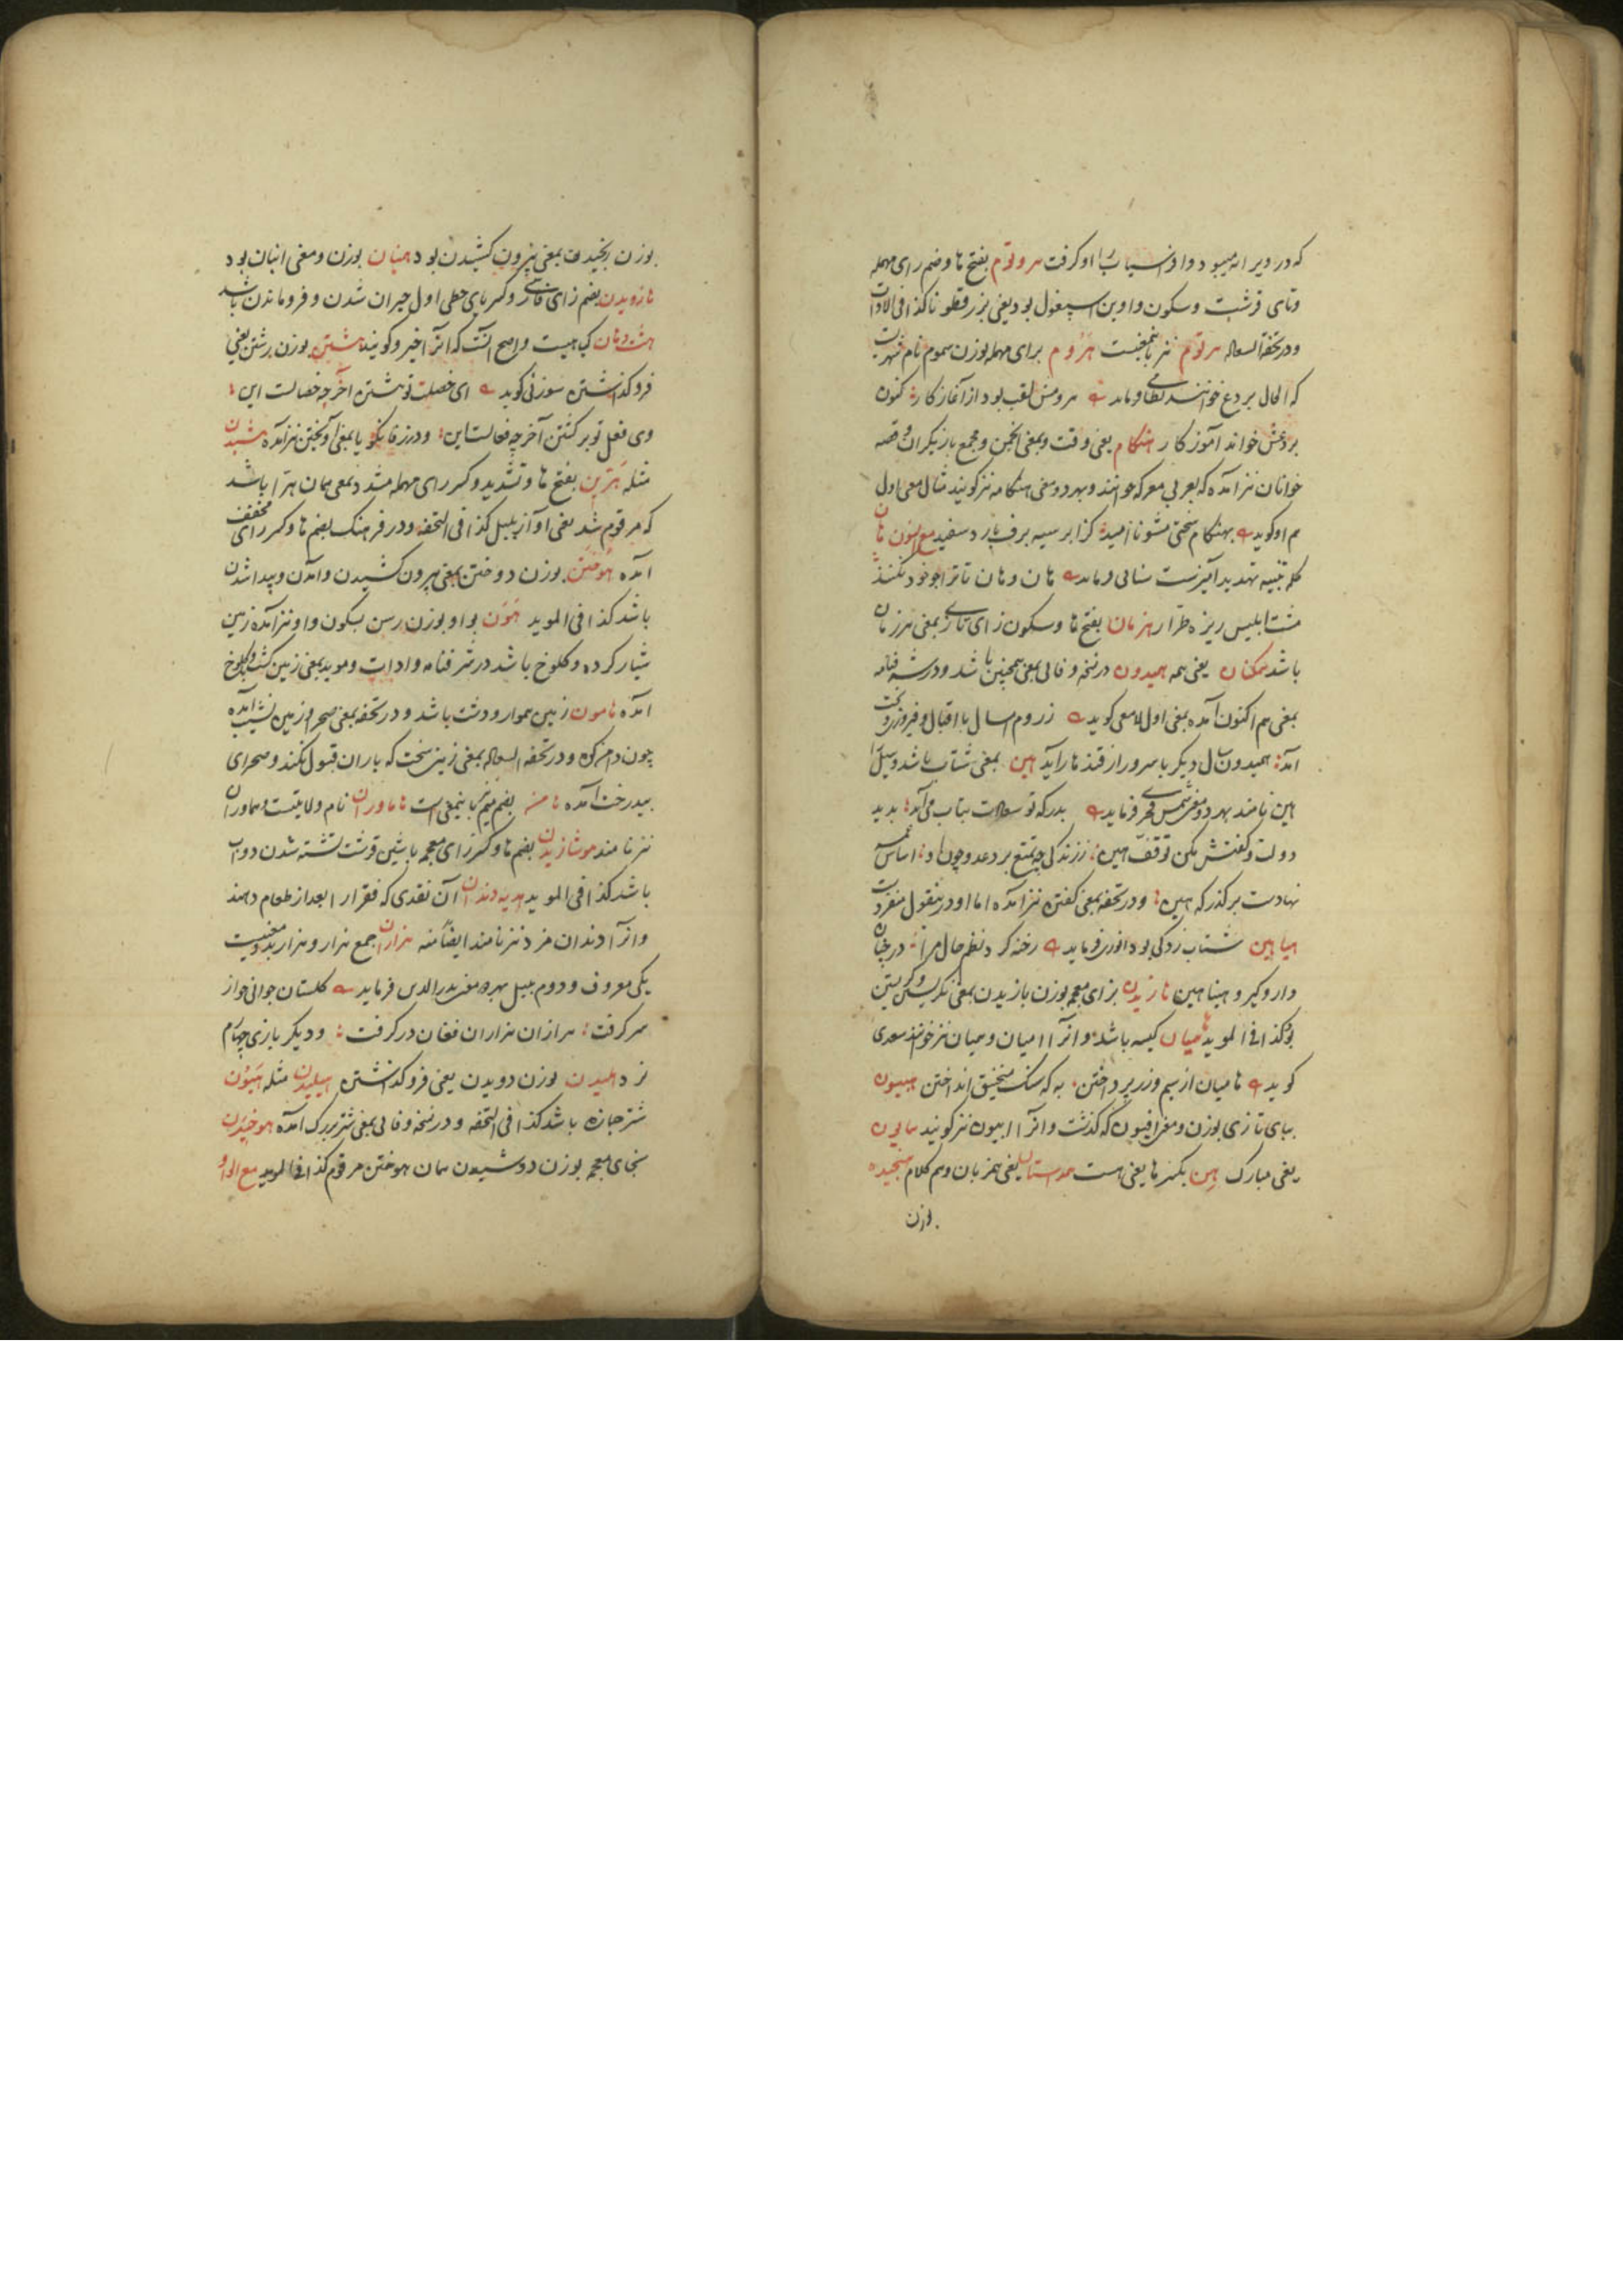 که در ویرانه میبود و افراسیاب را او گرفت هروتوم بفتح ها و ضم رای مهمله
و تای قرشت و سکون واو بن اسپغول بود یعنی بزرقطونا کذا فی الادات
و در تحفة السعاده هرتوم نیز باینمعنیست هروم برای مهمله بوزن سموم نام شهریست
که الحال بردع خوانند نظامی فرماید هرومش لقب بود از آغاز کار کنون
بردعش خواند آموزگار هنگام یعنی وقت و بمعنی انجمن و مجمع بازیگران و قصه
خوانان نیز آمده که بعربی معرکه خوانند و بهر دو معنی هنگامه نیز گویند مثال معنی اول
هم او گوید بهنگام سختی مشو ناامید کز ابر سیه برف بارد سفید مع النون هان
کلمه تنبیه تهدید آمیزست سنائی فرماید هان و هان تا ترا چو خود نکنند
مشت ابلیس ریزه طرار هزمان بفتح ها و سکون زای تازی بمعنی هرزمان
باشد همکنان یعنی همه همیدون در نسخه وفائی بمعنی همچنین باشد و در شرفنامه
بمعنی هم اکنون آمده بمعنی اول لامعی گوید ز روم امسال با اقبال و فیروزی و بخت
آمد همیدون سال دیگر با سرور از قندهار آید هین بمعنی شتاب باشد و سیل را
هین نامند بهر دو معنی شمس فخری فرماید بدرگه تو سعادت شتاب می آمد بدید
دولت و گفتش مکن توقف هین ز زندگی چه تمتع برد عدو چون او اساس
نهادست بر گذرکه هین و در تحفه بمعنی گفتن نیز آمده اما او در منقول منفردست
هیاهین شتاب زدگی بود انوری فرماید رخنه کرد نظم حال مرا در جهان
دار و گیر و هیناهین هازیدن بزای معجمه بوزن بازیدن بمعنی نگریستن و گریستن
بود کذا فی الموید همیان کیسه باشد و آنرا امیان و همیان نیز خوانند سعدی
گوید هامیان از سیم و زر پرداختن به که سنگ منجنیق انداختن هبیون
ببای تازی بوزن و معنی افیون که گذشت و آنرا ابیون نیز گویند همایون
یعنی مبارک هن بکسر ها یعنی هست همداستان یعنی همزبان و هم کلام هنجیدن
بوزن
بوزن رنجیدن بمعنی بیرون کشیدن بود هنبان بوزن و معنی انبان بود
هازویدن بضم زای فارسی و کسر یای حطی اول حیران شدن و فرو ماندن باشد
هشت دهان گیاهیست و اصح آنست که آنرا خیرو گویند هشتن بوزن رشتن یعنی
فرو گذاشتن سوزنی گوید ای خصلت تو هشتن آخر چه خصالست این
وی فعل تو برگشتن آخر چه فعالست این و در زفانگویا بمعنی آویختن نیز آمده هشیدن
مثله هترین بفتح ها و تشدید و کسر رای مهمله مشدد بمعنی همان هترا باشد
که مرقوم شد یعنی آواز بلبل کذا فی التحفه و در فرهنگ بضم ها و کسر رای مخفف
آمده هوختن بوزن دوختن بمعنی بیرون کشیدن و آمدن و پیدا شدن
باشد کذا فی الموید هون بواو بوزن رسن بسکون واو نیز آمده زمین
شیار کرده و کلوخ باشد در شرفنامه و ادات و موید بمعنی زمین کشت و کلوخ
آمده هامون زمین هموار و دشت باشد و در تحفه بمعنی صحرا و زمین نشیب آمده
چون دامن کوه و در تحفة السعاده بمعنی زمین سخت که باران قبول نکند و صحرای
بیدرخت آمده هامن بضم میم نیز باینمعنی است هاماوران نام ولایتیست و هماوران
نیز نامند هوشازیدن بضم ها و کسر زای معجمه با شین قرشت تشنه شدن دواب
باشد کذا فی الموید هدیه دندان آن نقدی که فقرا را بعد از طعام دهند
و آنرا دندان مزد نیز نامند ایضاً منه هزاران جمع هزار و هزار بدو معنیست
یکی معروف و دوم بلبل بهر دو معنی بدرالدین فرماید گلستان جوانی خواز
سر گرفت هزاران هزاران فغان در گرفت و دیگر بازی چهارم
نرد هلیدن بوزن دویدن یعنی فرو گذاشتن هیلیدن مثله هیون
شتر جمازه باشد کذا فی التحفه و در نسخه وفائی بمعنی شتر بزرگ آمده هوخیدن
بخای معجمه بوزن دوشیدن همان هوختن مرقوم کذا فی الموید مع الواو